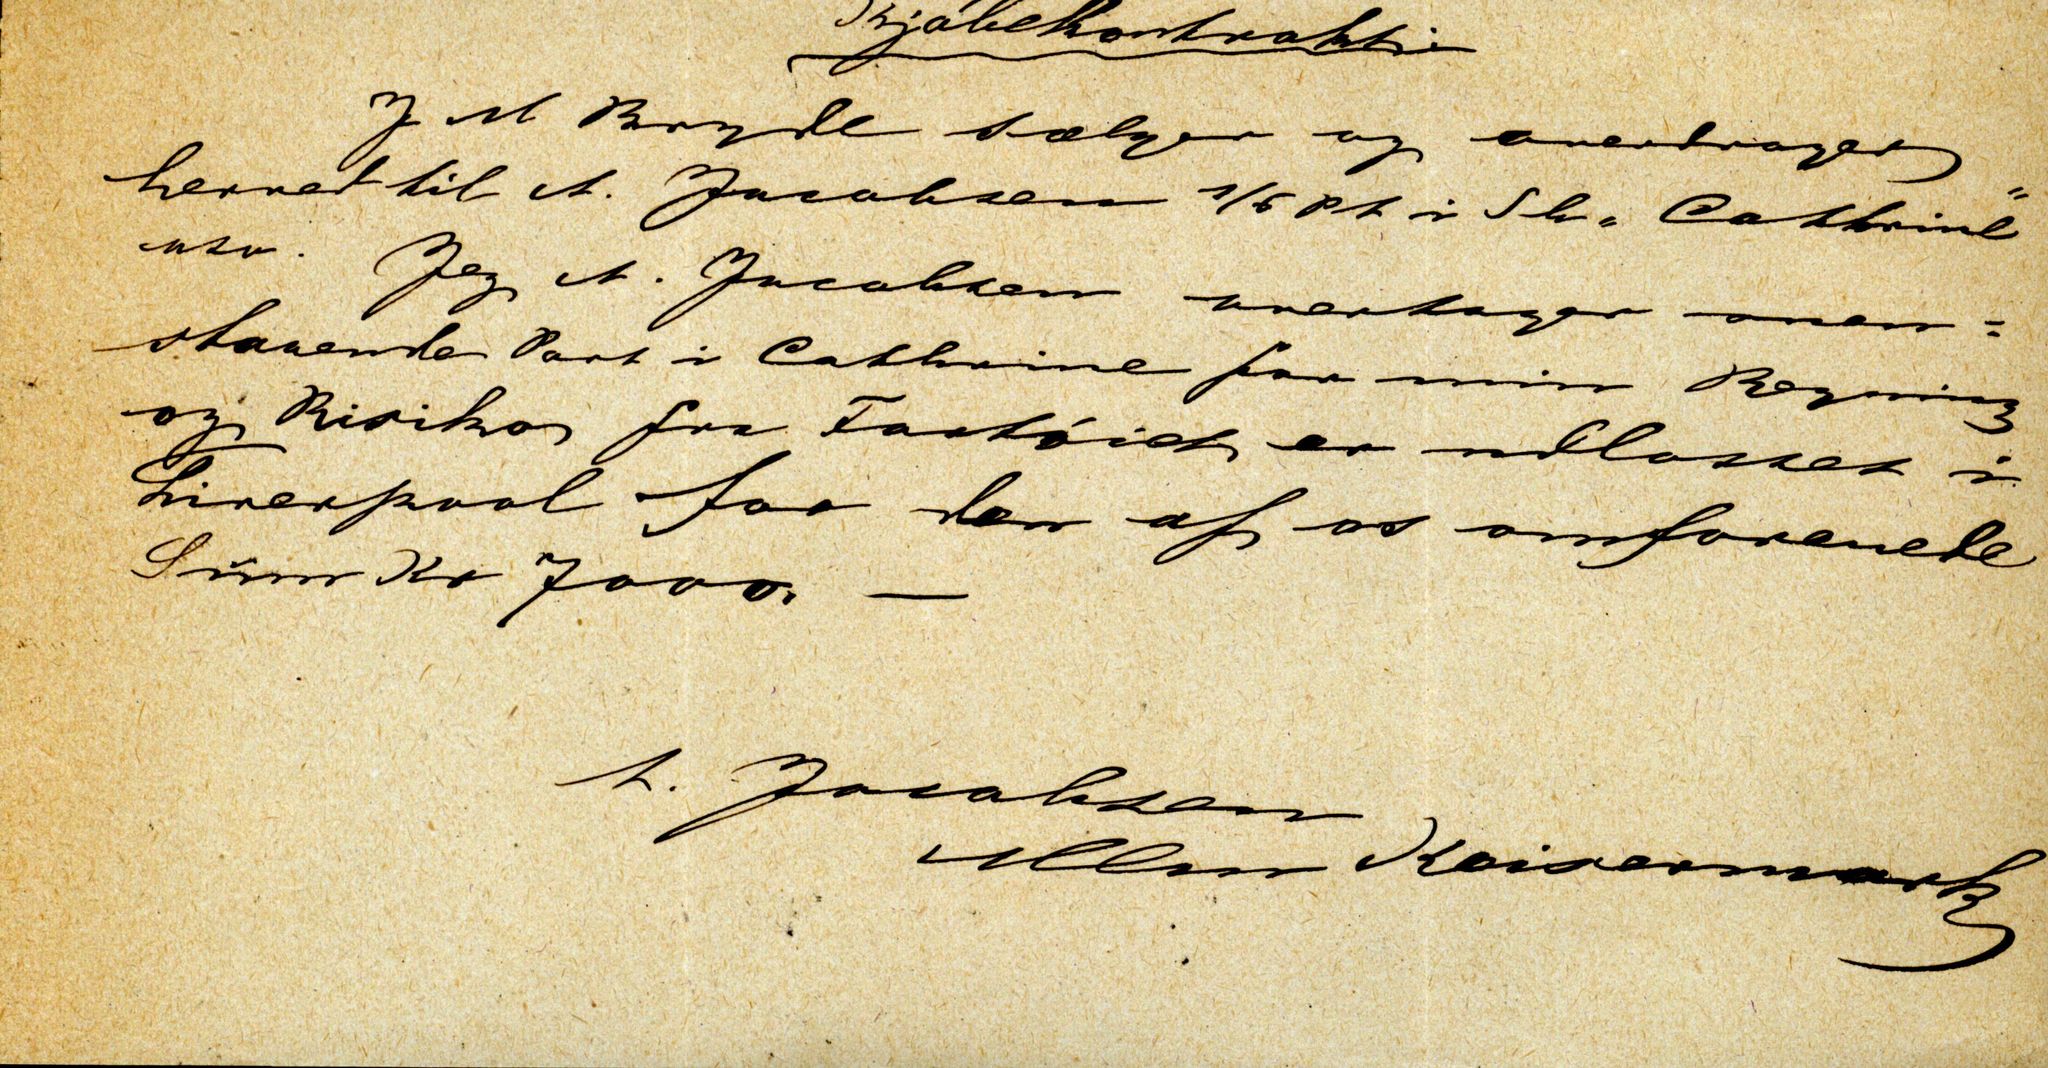 Kjøbekontrakt
J M Bryde sælger og overdrager
herved til A. Jacobsen 1/6 Pt i Sk „Cathrine"
usv. Jeg A. Jacobsen overtager oven=
staaende Part i Cathrine for min Regning
og Risiko fra Fartøiet er udlosset i
Liverpool for den af os omforenede
Sum Kr 7000. —
A. Jacobsen
Kaisermark